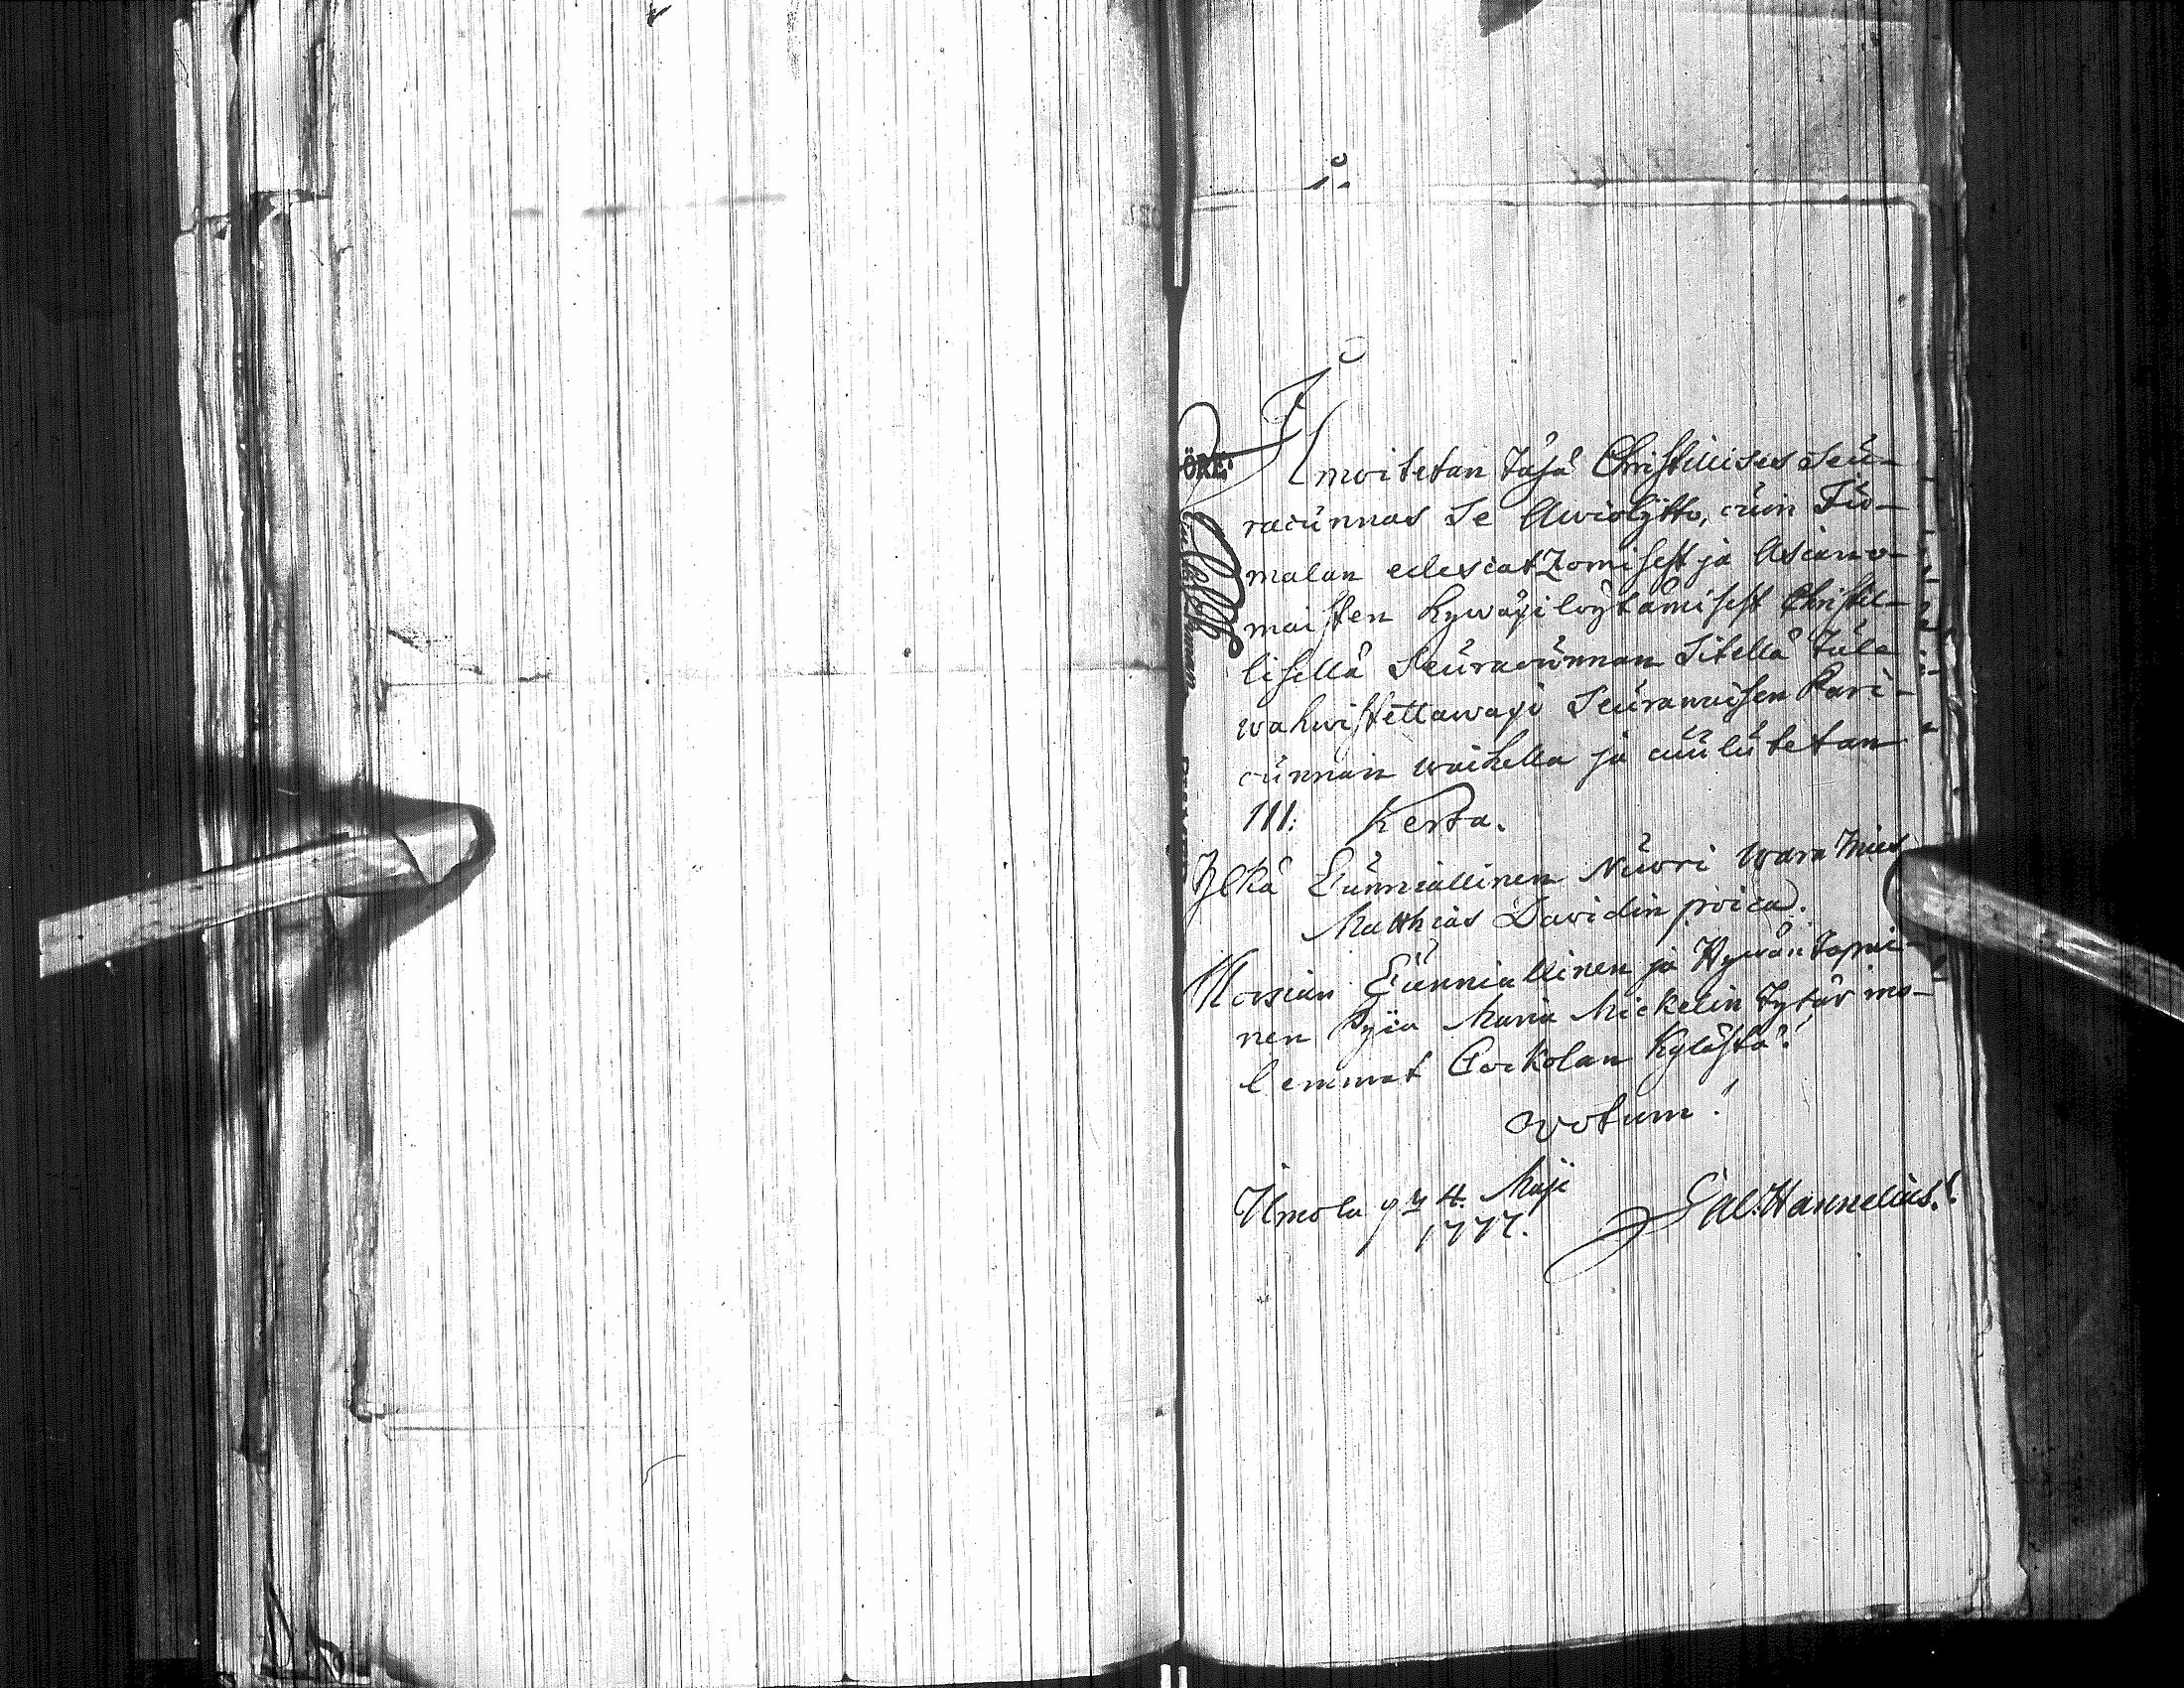 Ilmoitetan täsä Christillises Seu-
racunnas Se Awioljtto, cuin Ju-
malan edescatzomisest ja Asiano-
maisten hywäxi löytämisest Christil-
lisellä Seuracunnan Sitellä tule
wahwistettawaxi Seurawaisen Pari-
cunnan waihella ja cuulutetan
III: Kerta.
Ylkä Cunniallinen Nuori wara Mies
Matthias Davidin poica.
Morsian Cunniallinen ja Hywäntapai-
nen Pijca Maria Mickelin Tytär mo-
lemmat Cockolan Kylästä.
votum!
Ulwola 4. Maji
1777. Gal. Hannelius.
ÖRE.